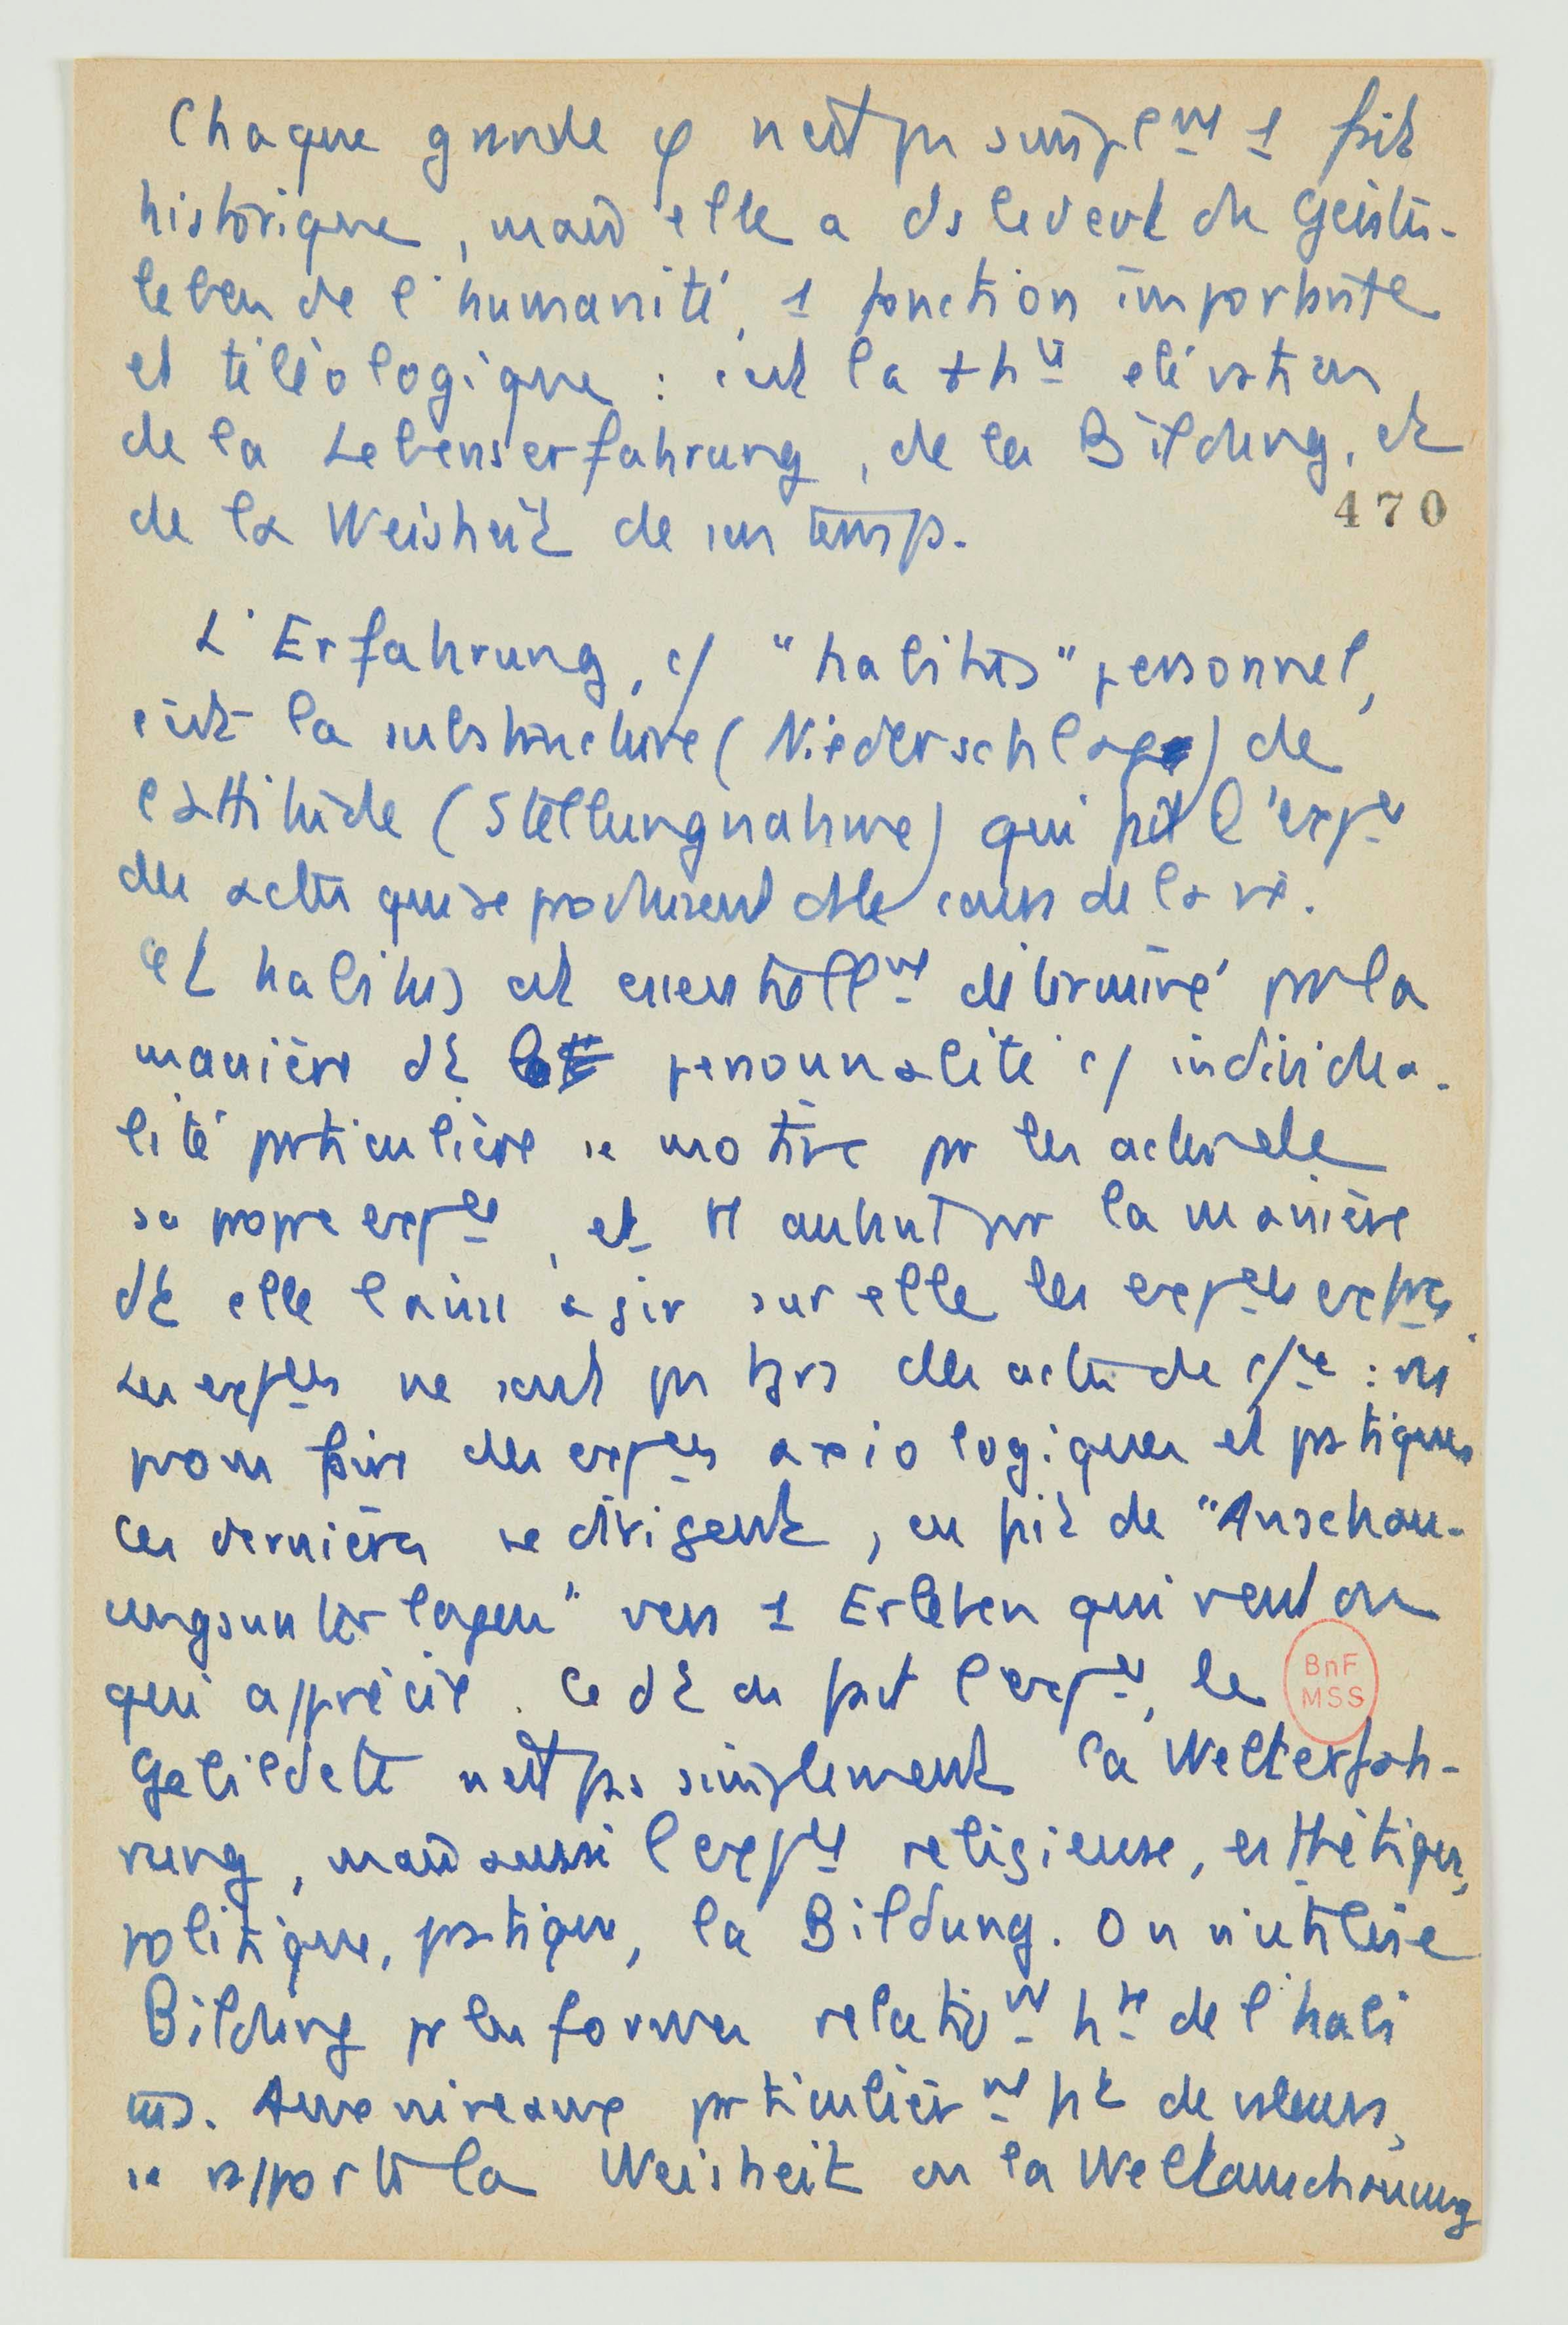 Chaque grande φ n'est pas simplemt 1 fait
historique, mais elle a ds le devt du Geistes-
leben de l'humanité, 1 fonction importante
et téléologique : c'est la + hte élévation
de la Lebenserfahrung, de la Bildung, et
de la Weisheit de son temps.
470
L'Erfahrung, c/ "habitus" personnel,
c'est la substructure (Niederschlag) de
l'attitude (Stellungnahme) qui fait l'expce
des actes qui se produisent ds le cours de la vie.
Cet habitus est essentiellmt déterminé par la
manière dt personnalité c/ individua-
lité particulière se motive par les actes de
sa propre expce, et tt autant par la manière
dt elle laisse agir sur elle les expces
Les expces ne sont pas ts des actes de : ns
pvons faire des expces axiologiques et pratiques
Ces dernières se dirigent, en fait de "Anschau-
ungsunterlagen" vers 1 Erleben qui veut ou
qui apprécie. Ce dt on fait l'expce, le
BnF
MSS
Gebildete n'est pas simplement la Welterfah-
rung, mais aussi l'expce religieuse, esthétique,
politique, pratique, la Bildung. On n'utilise
Bildung pr les formes relativmt htes de l'habi
tus. Aux niveaux particulièrmt ht de valeurs,
se rapporte la Weisheit ou la Weltanschauung